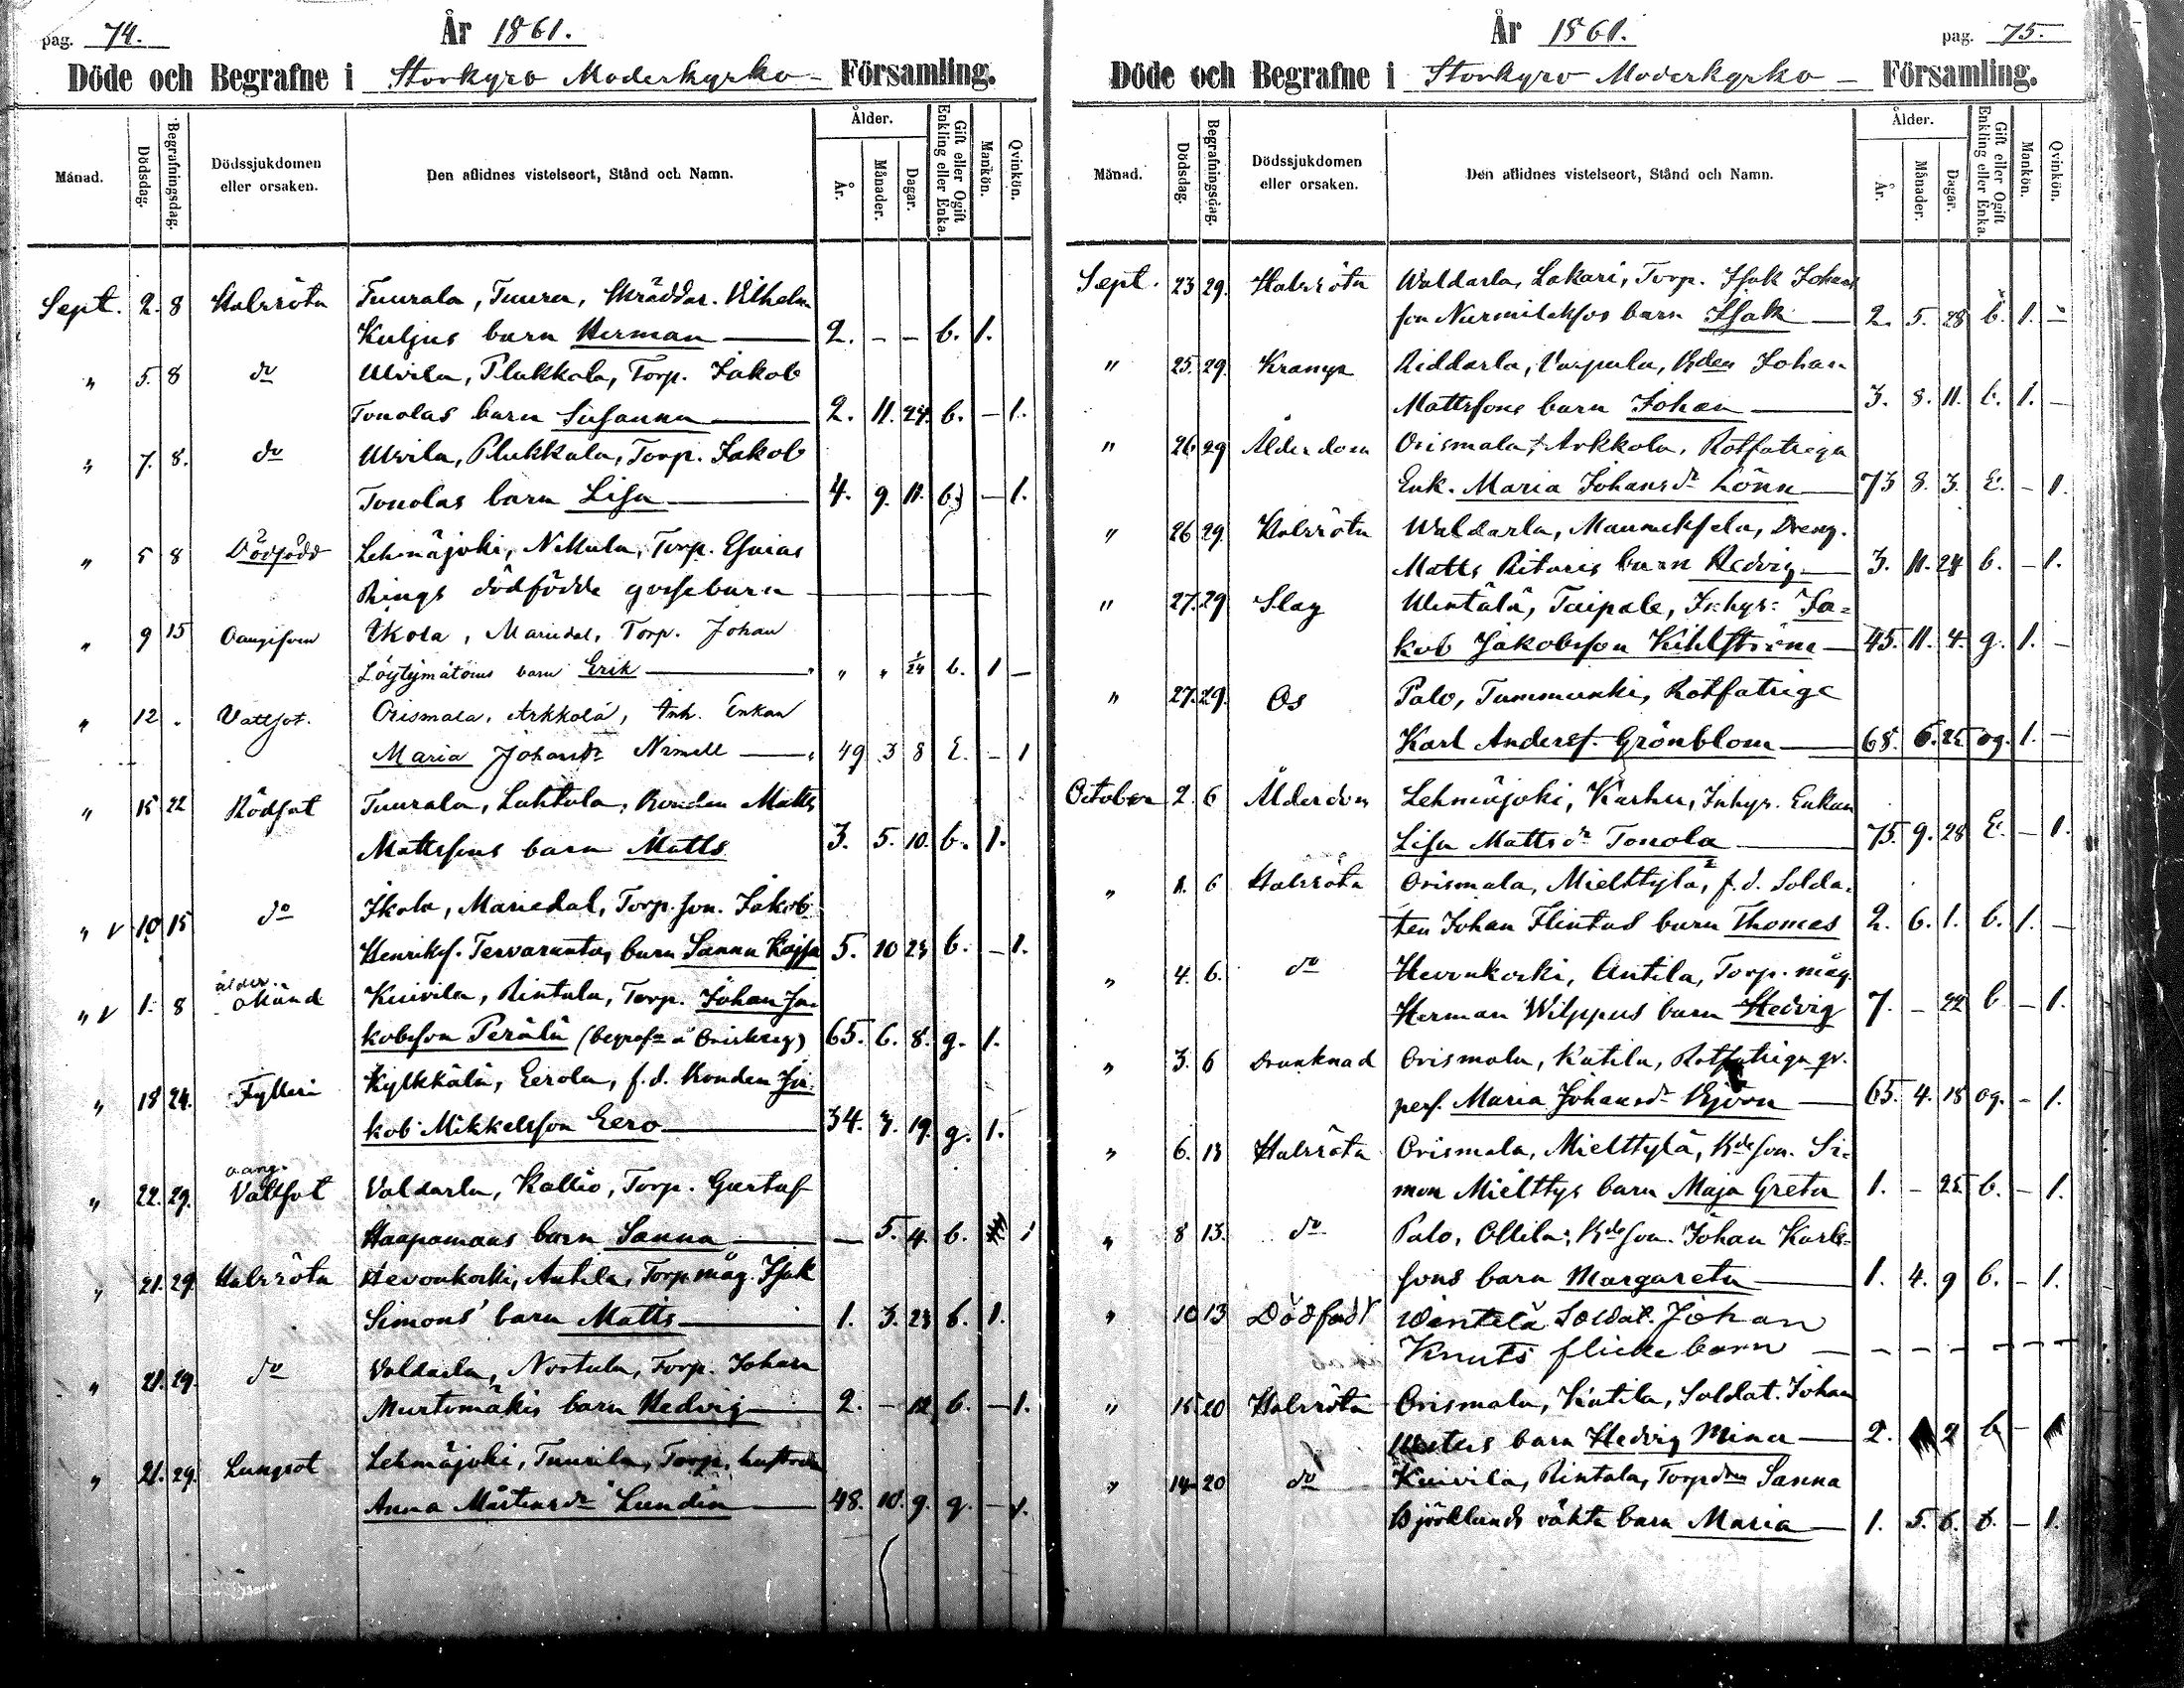 pag. 74.
År 1861.
Döde och Begrafne i Storkyro Moderkyrko- Församling.
Månad.
Dödsdag.
Begrafningsdag.
Dödssjukdomen
eller orsaken.
Den aflidnes vistelseort, Stånd och Namn.
Ålder.
År.
Månader.
Dagar.
Gift eller Ogift
Enkling eller Enka.
Mankön.
Qvinkön.
Sept. 2. 8 Halsröta Tuurala, Tuura, Skräddar. Vilhelm
Kuljus barn Herman — 2. - - b. 1.
" 5. 8 do Ulvila, Plukkala, Torp. Jakob
Tonolas barn Susanna — 2. 11. 24. b. - 1.
" 7. 8. do Ulvila, Plukkala, Torp. Jakob
Tonolas barn Lisa — 4. 9. 11. b. - 1.
" 5 8 Dödfödd Lehmäjoki, Nikula, Torp. Esaias
Rings dödfödde gossebarn —
" 9 15 Oangifven Ikola, Mariedal, Torp. Johan
Löytymäkous barn Erik — " " 1/24 b. 1 -
" 12 . Vattsot. Orismala, Arkkola, Inh. Enkan
Maria Johansdr Nimell — 49 3 8 E. - 1
" 15 22 Rödsot Tuurala, Lahtola, Bonden Matts
Mattssons barn Matts 3. 5. 10. b. 1.
" v 10 15 do Ikola, Mariedal, Torp. son. Jakob
Henriks. Tervarantas barn Sanna Kajsa 5. 10 23 b. - 1.
" v 1. 8 ålder. okänd Kuivila, Rintala, Torp. Johan Ja-
kobsson Perälä 65. 6. 8. g. 1.
" 18 24. Fylleri Kylkkälä, Eerola, f.d. Bonden Ja-
kob Mikkelsson Eero — 34. 3. 19. g. 1.
" 22. 29. oang. Vattsot Valdarla, Kallio, Torp. Gustaf
Haapamaas barn Sanna — - 5. 4. b. 1
" 21. 29. Halsröta Hevonkoski, Antila, Torp. måg. Isak
Simons barn Matts — 1. 3. 23 b. 1.
" 21. 29. do Valdarla, Nortula, Torp. Johan
Murtomäkis barn Hedvig — 2. - 12 b. - 1.
" 21. 29. Lungsot Lehmäjoki, Tuurila, Torp. hustrun
Anna Mårtensdr Lundin — 48. 10. 9. g. - 1.
År 1861.
pag. 75.
Döde och Begrafne i Storkyro Moderkyrko - Församling.
Månad.
Dödsdag.
Begrafningsdag.
Dödssjukdomen
eller orsaken.
Den aflidnes vistelseort, Stånd och Namn.
Ålder.
År.
Månader.
Dagar.
Gift eller Ogift
Enkling eller Enka.
Mankön.
Qvinkön.
Sept. 23 29. Halsröta Waldarla, Lakari, Torp. Isak Johans
son Nurmilaksos barn Isak — 2. 5. 28 b. 1. -
" 25. 29. Kramp Riddarla, Varpula, Bden Johan
Mattssons barn Johan — 3. 8. 11. b. 1. -
" 26 29 Ålderdom Orismala, Arkkola, Rotfatiga
Enk. Maria Johansdr Lönn — 73 8. 3. E. - 1.
" 26 29. Halsröta Waldarla, Maunuksela, Dreng.
Matts Ritaris barn Hedvig — 3. 11. 24 b. - 1.
" 27. 29 Slag Wentälä, Taipale, Inhys: Ja-
kob Jakobsson Kihlström — 45. 11. 4. g. 1. -
" 27. 29. Os Palo, Tummunki, Rotfatige
Karl Anderss. Grönblom — 68. 6. 25 og. 1. -
October 2. 6 Ålderdom Lehmäjoki, Karhu, Inhys. Enkan
Lisa Mattsdr Tonola — 75. 9. 28 E. - 1.
" 1. 6 Halsröta Orismala, Mielttylä, f.d. Solda-
ten Johan Flintas barn Thomas 2. 6. 1. b. 1. -
" 4. 6. do Hevonkoski, Antila, Torp. måg.
Herman Wilppus barn Hedvig 7. - 22 b - 1.
" 3. 6 Drunknad Orismala, Katila, Rotfatiga qv.
pers. Maria Johansdr Björn — 65. 4. 18 og. - 1.
" 6. 13 Halsröta Orismala, Mielttylä, Bde son. Si-
mon Mielttys barn Maja Greta 1. - 25 b. - 1.
" 8 13. do Palo, Ollila, Bde son. Johan Karls-
sons barn Margareta — 1. 4. 9 b. - 1.
" 10 13 Dödfödt Wentelä Soldat. Johan
Knuts flicke barn - - - - - - -
" 15 20 Halsröta Orismala, Katila, Soldat. Johan
barn Hedvig Mina — 2. 2 b -
" 14 20 do Kuivila, Rintala, Torpdrn Sanna
Björklunds oäkta barn Maria — 1. 5. 6. b. - 1.